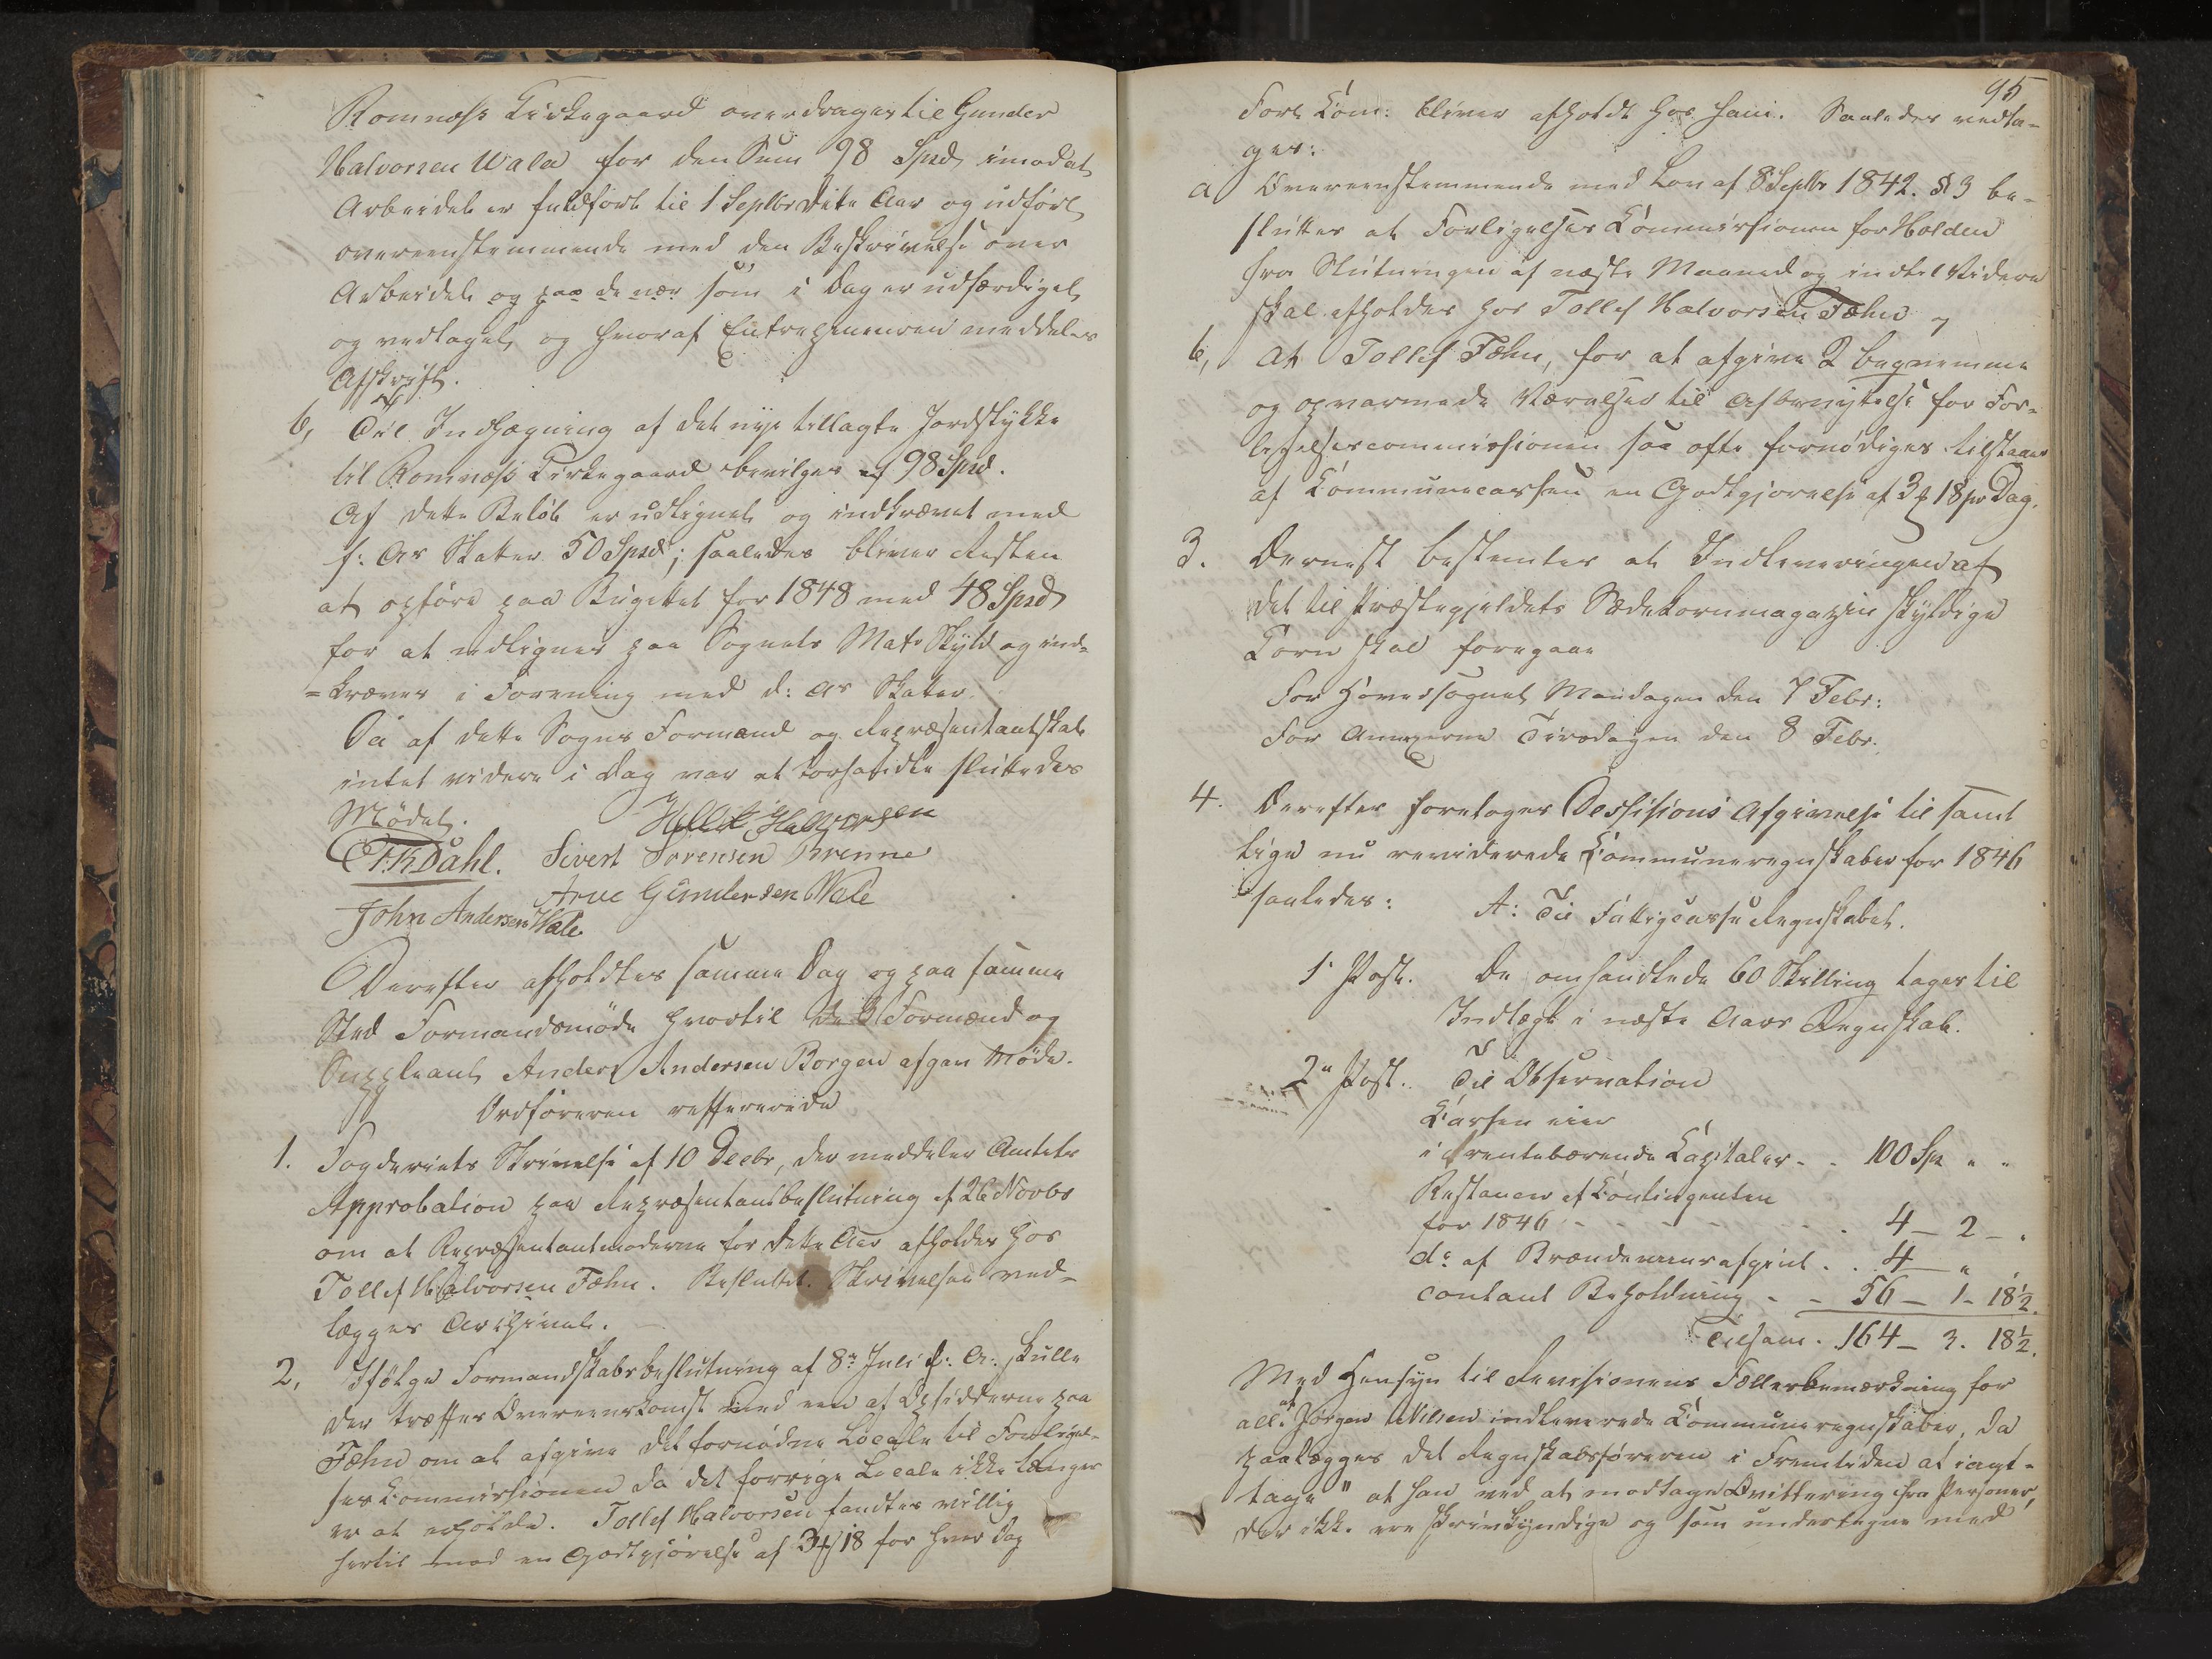 Romnæss Kirkegaard overdrages til Gunder
Halvorsen Wala for den Sum 98 Spd imod at
Arbeidet er fuldført til 1 Septbr dette Aar og udført
overeenstemmende med den Beskrivelse over
Arbeidet og som i Dag er udfærdiget
og vedtaget og hvoraf Entreprenneuren meddeles
Afskrift.
b, Til Indhægning af det nye tillagte Jordstykke
til Romnæss Kirkegaard bevilges 98 Spd.
Af dette Beløb er udlignet og indkrævet med
f: Ars Skatter 50 Spd; saaledes bliver Resten
at opføre paa Bugettet for 1848 med 48 Spd
for at udlignes paa Sognets Mat: Skyld og ind-
=kræves i Forening med d: Ars Skatter.
Da af dette Sogns Formænd og Repræsentantskab
intet videre i Dag var at forhandle sluttedes
Mødet.
Halvorsen
T. K. Dahl. Sivert Sørensen Brenne
Arve Gundersen Wale
John Andersen Wale
Derefter afholdtes samme Dag og paa samme
Sted Formandsmøde hvortil de 3 Formænd og
Suppleant Anders Andersen Borgen afgav Møde.
Ordføreren reffererede
1. Fogderiets Skrivelse af 10 Decbr, der meddeler Amtets
Approbation paa Repræsentantbeslutning af 26 Novbr
om at Repræsentantmøderne for dette Aar afholdes hos
Tollef Halvorsen Fæhn. Besluttet. Skrivelsen ved-
lægges Archivet.
2, Ifølge Formandskabsbeslutning af 8de Juli f: A: skulle
der træffes Overeenskomst med een af Opsidderne paa
Fæhn om at afgive det fornødne Locale til Forligel-
ses Kommissionen da det forrige Locale ikke længer
er at erholde. Tollef Halvorsen fandtes villig
hertil mod en Godtgjørelse af 3 18 for hver Dag
95
Forl. Kom: bliver afholdt hos ham. Saaledes vedta-
ges:
a Overeenstemmende med Lov af 8 Septbr 1842. § 3 be-
sluttes at Forligelses Kommissionen for Holden
fra Slutningen af næste Maaned og indtil Videre
skal afholdes hos Tollef Halvorsen Fæhn
b, At Tollef Fæhn, for at afgive 2 beqvemme
og opvarmede Værelser til Afbenyttelse for For-
ligelsescommissionen saa ofte fornødiges tilstaaes
af Kommunecassen en Godtgjørelse af 3 18 pr Dag.
3. Dernæst bestemtes at Indleveringen af
det til Præstegjeldets Sædekornmagazin skyldige
Korn skal foregaae
For Hovedsognet Mandagen den 7 Febr:
For Annexerne Tirsdagen den 8 Febr.
4. Derefter foretoges Dessisions Afgivelse til samt
lige nu reviderede Kommuneregnskaber for 1846
saaledes:
A: Til Fattigcasse Regnskabet.
1 Post. De omhandlede 60 Skilling tages til
Indtægt i næste Aars Regnskab.
2n Post. Til Observation
Kassen eier
i rentebærende Kapitaler - - 100 Spd " "
Restancer af Kontingenten
for 1846 - - - - - - 4 - 2 - "
do af Brændeviinsafgivt . . 4 " "
contant Beholdning - - 56 - 1 - 18½.
Tilsam. 164 - 3. 18½.
Med Hensyn til Revisionens Fællesbemærkning for
alle af Jørgen Nilsen indleverede Kommuneregnskaber, da
paalægges det Regnskabsføreren i Fremtiden at iagt-
tage "at han ved at modtage Qvittering fra Personer,
der ikke ere skrivkyndige og som undertegne med